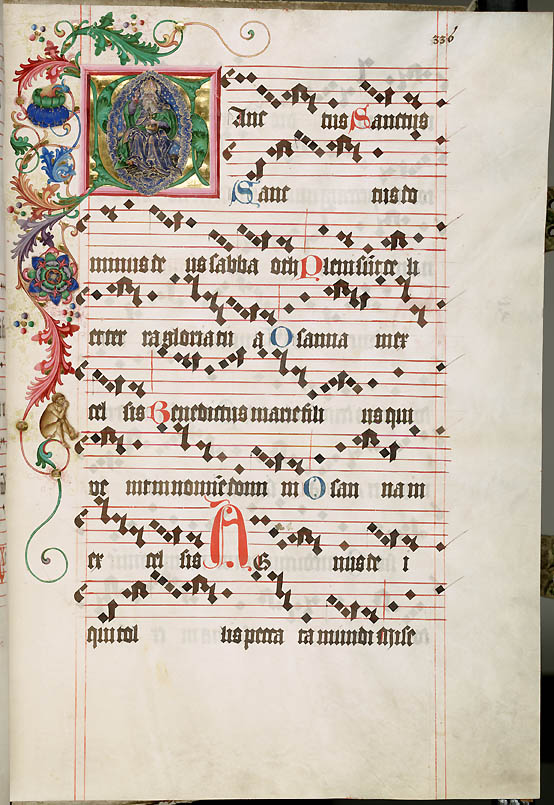 336
Anc tus Sanctus
Sanc tus do
minus de us saba oth Pleni sūt ce li
et ter ra gloria tu a Osanna in ex
cel sis Benedictus marie fili us qui
ve nit in nomīe domi ni O san na in
ex cel sis A G nus de i
qui tol lis pecca ta mundi mise